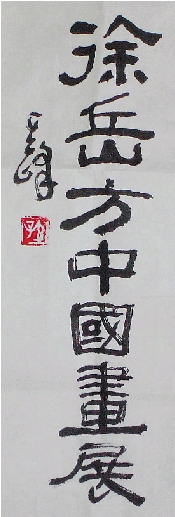 徐岳方中國畫展